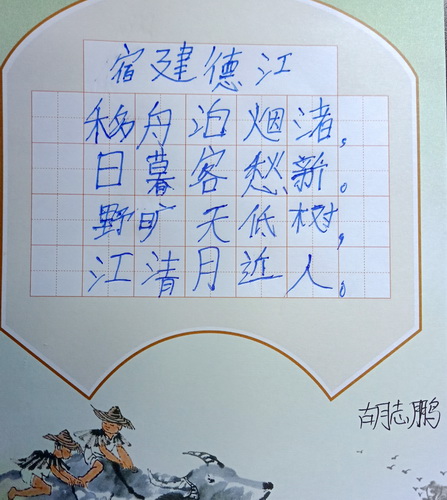 宿建德江
移舟泊烟渚，
日暮客愁新。
野旷天低树，
江清月近人。
胡志鹏